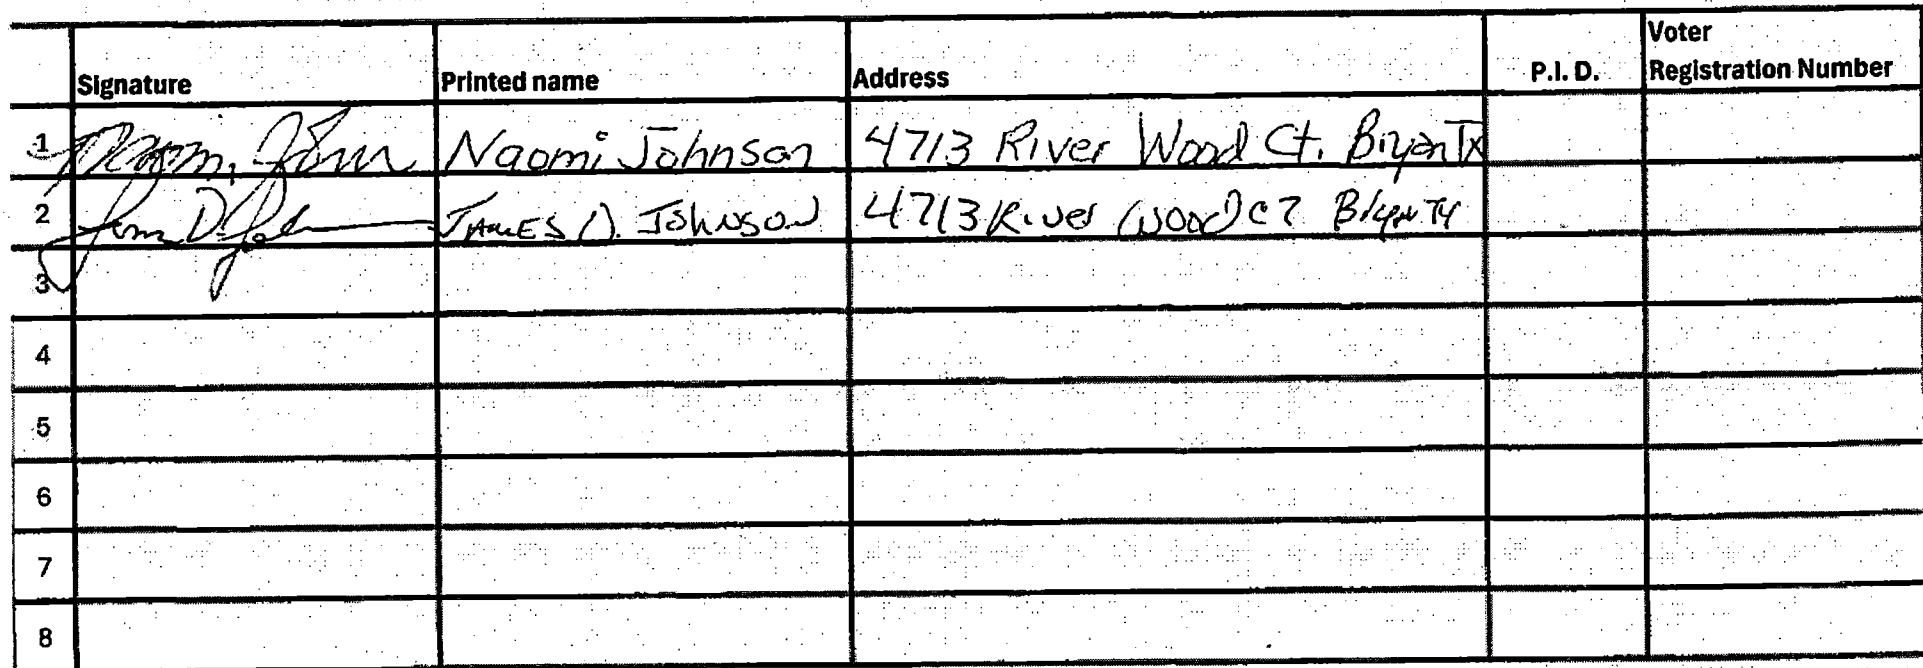 Signature Printed name Address P.I.D. Voter Registration Number
1 Naomi Johnson Naomi Johnson 4713 River Wood Ct. Bryan Tx
2 James D. Johnson 4713 River Wood CT Bryan TX
3
4
5
6
7
8